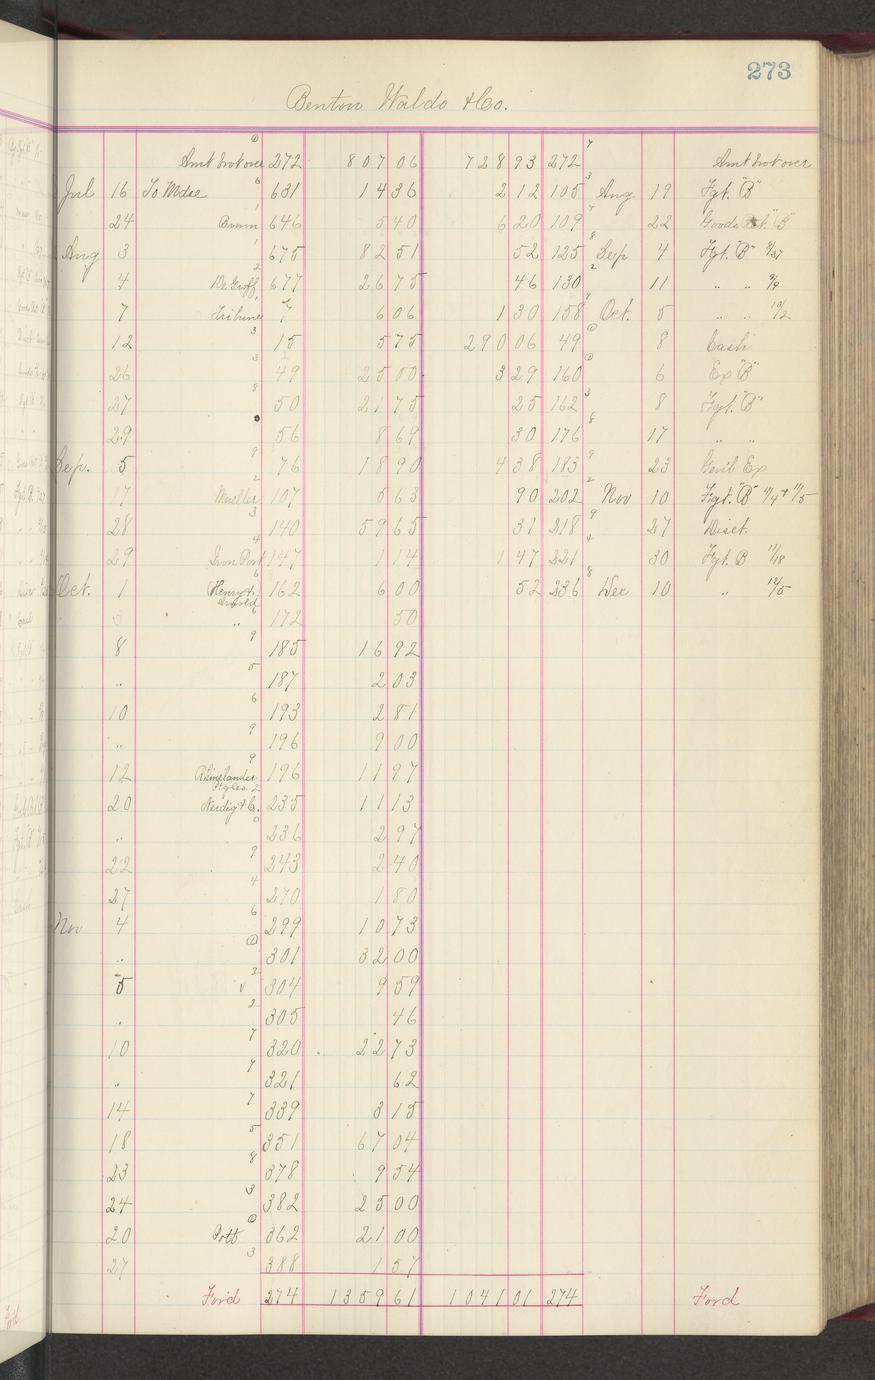 273
Benton Waldo & Co.
Amt brot over 272 807 06 728 93 272 7 Amt brot over
Jul 16 To Mdse 6 631 14 36 2 12 105 3 Aug 19 Fgt. "B"
24 1 646 5 40 6 20 109 4 22 Goods "B"
Aug 3 1 675 82 51 52 125 8 Sep 4 Fgt. "B"
4 De Groff 2 677 26 75 46 130 2 11 " " 9/9
7 Tribune 1 7 6 06 1 30 158 7 Oct. 5 " " 10/2
12 3 15 5 75 290 06 49 8 Cash
26 3 49 25 00 3 29 160 6 Ex "B"
27 8 50 21 75 25 162 3 8 Fgt. "B"
29 56 8 69 30 176 8 17 " "
Sep. 5 9 76 18 90 4 38 183 9 23 Genl Ex
17 Mueller 2 107 5 63 90 202 2 Nov 10 Fgt. "B" 11/4 & 11/5
28 3 140 59 65 31 218 9 27 Disct.
29 Iron Port 4 147 1 14 1 47 221 4 30 Fgt. B 11/18
Oct. 1 Henry & 6 162 6 00 52 236 8 Dec 10 " 12/5
3 " 6 172 50
8 9 185 16 92
" 5 187 2 03
10 6 193 2 81
" 9 196 9 00
12 Rhinelander 9 196 11 97
20 Neidig & C. 2 235 11 13
" 0 236 2 97
22 9 243 2 40
27 4 270 1 80
Nov 4 6 299 10 73
" 301 32 00
5 2 304 9 59
" 2 305 46
10 7 320 22 73
" 7 321 62
14 7 339 3 15
18 5 351 67 04
23 8 378 9 54
24 3 382 25 00
20 Potts 362 21 00
27 3 388 1 57
Ford 274 1359 61 1041 01 274 Ford